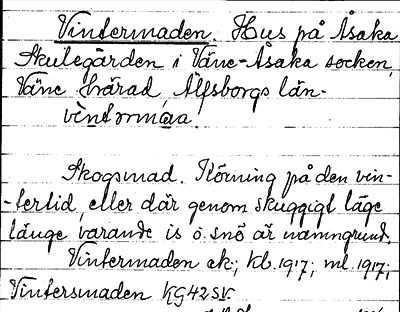 Vintermaden. Hus på Åsaka
Skulegården i Väne-Åsaka socken,
Väne härad, Älfsborgs län.
vèntərmáa.
Skogsmad. Körning på den vin-
-tertid, eller där genom skuggigt läge
länge varande is o. snö är namngrund.
Vintermaden ek; kb. 1917; ml. 1917;
Vintersmaden KG42SV.